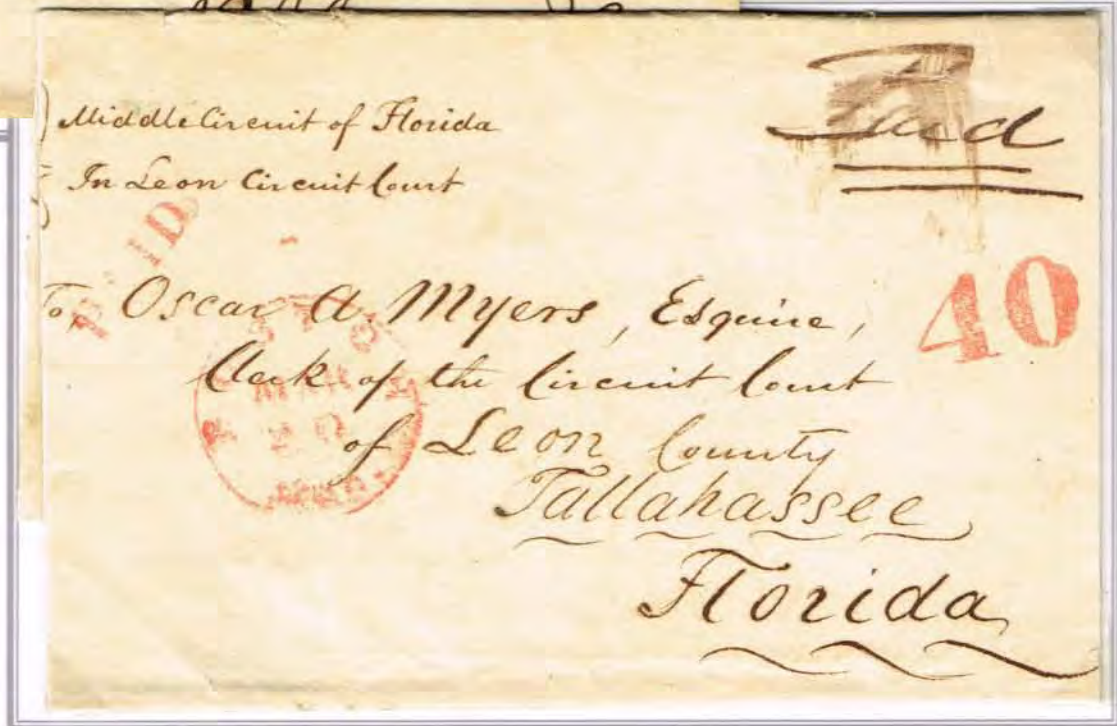 Middle Circuit of Florida
In Leon Circuit Court
Paid
PAID
40
To, Oscar A Myers, Esquire,
Clerk of the Circuit Court
of Leon County
Tallahassee
Florida